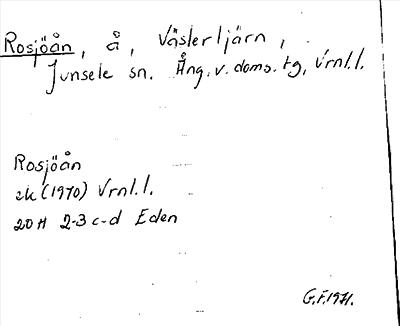 Rosjöån, å, Väslertjärn,
Junsele sn. Ång. v. doms. tg, Vrnl.l.
Rosjöån
ek (1970) Vrnl.l.
20 H 2-3 c-d Eden
G.F. 1971.